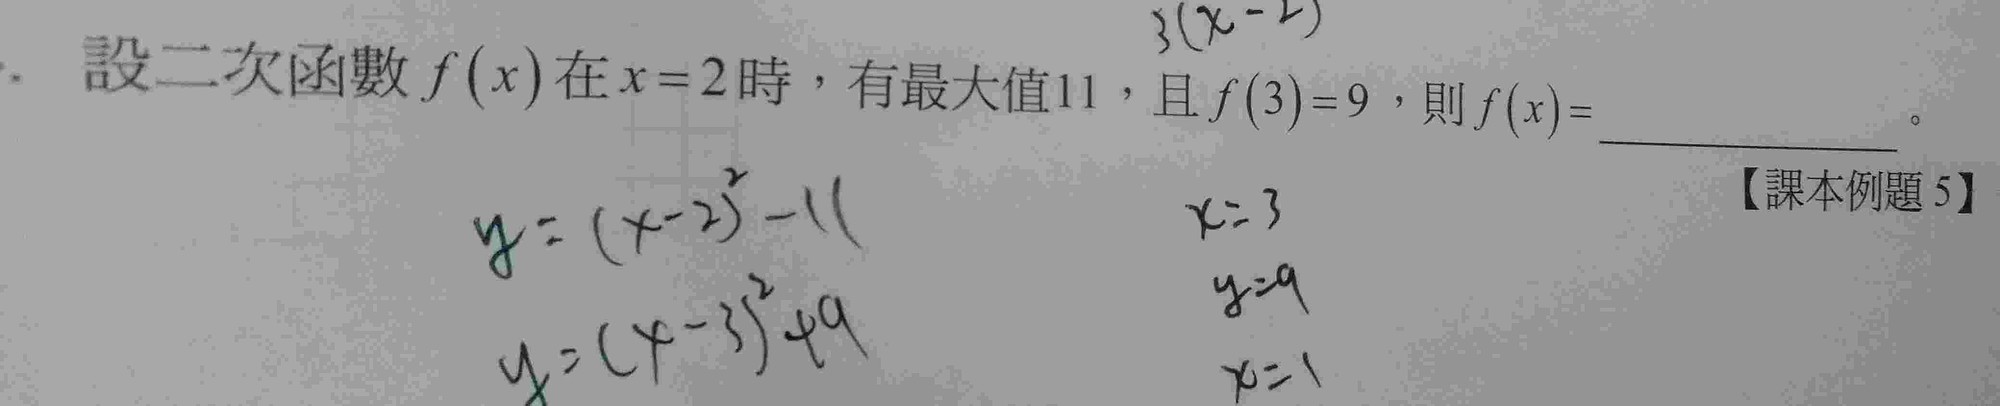 3(x-2)
設二次函數 f(x) 在 x=2 時，有最大值11，且 f(3)=9，則 f(x)=__________。
【課本例題 5】
y=(x-2)²-11
y=(x-3)²+9
x=3
y=9
x=1